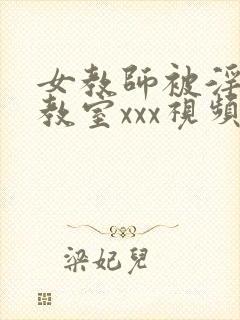 女教師被淫
教室xxx視頻
梁妃兒